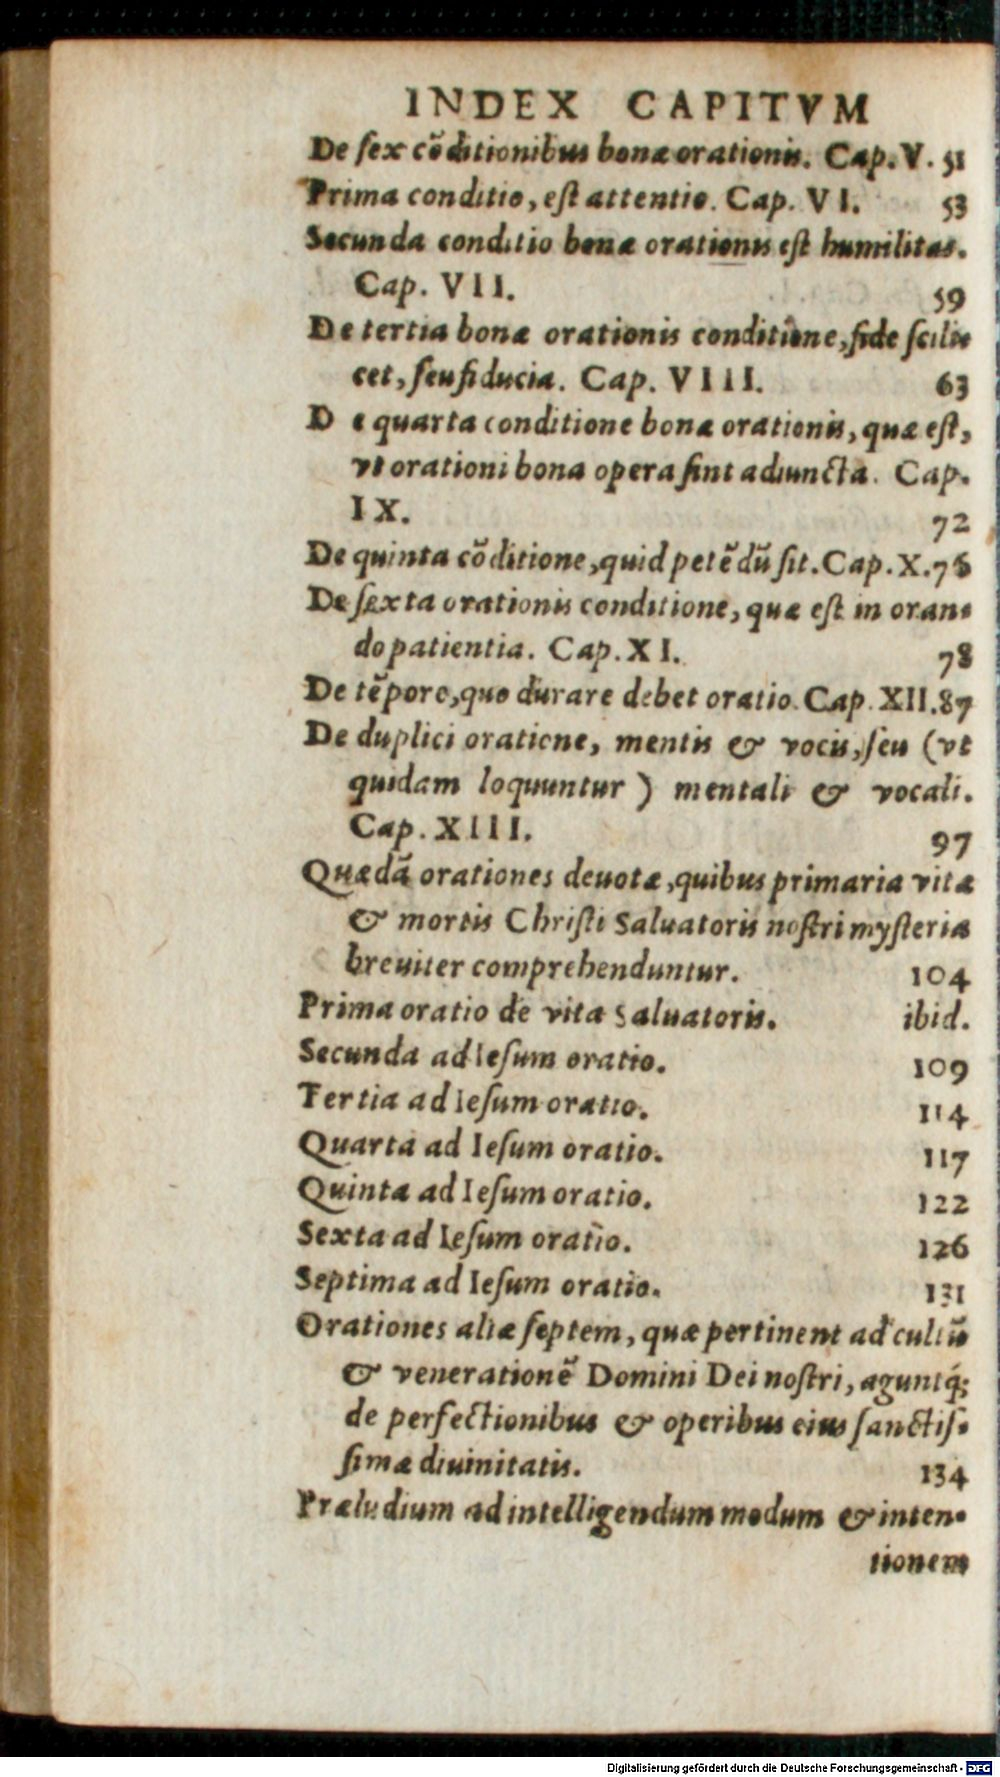 INDEX CAPITVM
De ſex cõditionibus bonæ orationis. Cap. V. 51
Prima conditio, eſt attentio. Cap. VI. 53
Secunda conditio bonæ orationis eſt humilitas.
Cap. VII. 59
De tertia bonæ orationis conditione, fide ſcili-
cet, ſeu fiducia. Cap. VIII. 63
D e quarta conditione bonæ orationis, quæ eſt,
vt orationi bona opera ſint adiuncta. Cap.
IX. 72
De quinta cõditione, quid petẽdũ ſit. Cap. X. 76
De ſexta orationis conditione, quæ eſt in oran-
do patientia. Cap. XI. 78
De tẽpore, quo durare debet oratio. Cap. XII. 87
De duplici oratione, mentis & vocis, ſeu (vt
quidam loquuntur) mentali & vocali.
Cap. XIII. 97
Quædã orationes deuotæ, quibus primaria vitæ
& mortis Chriſti Saluatoris noſtri myſteria
breuiter comprehenduntur. 104
Prima oratio de vita Saluatoris. ibid.
Secunda ad Ieſum oratio. 109
Tertia ad Ieſum oratio. 114
Quarta ad Ieſum oratio. 117
Quinta ad Ieſum oratio. 122
Sexta ad Ieſum oratio. 126
Septima ad Ieſum oratio. 131
Orationes aliæ ſeptem, quæ pertinent ad cultũ
& venerationẽ Domini Dei noſtri, aguntq́;
de perfectionibus & operibus eius ſanctiſ-
ſimæ diuinitatis. 134
Præludium ad intelligendum modum & inten-
tionem
Digitalisierung gefördert durch die Deutsche Forschungsgemeinschaft - DFG